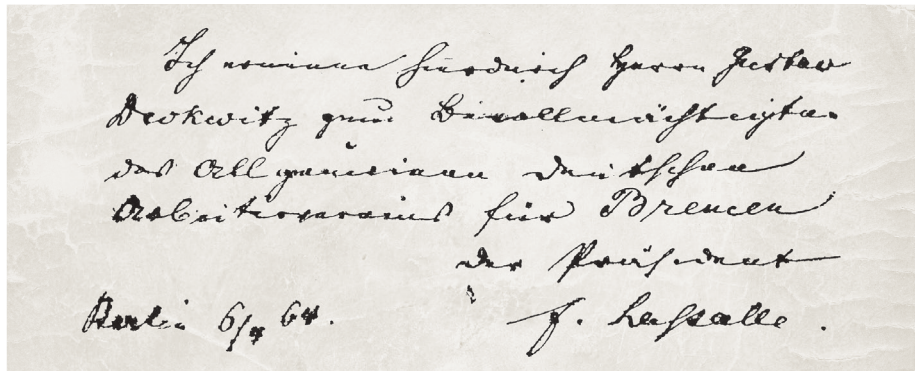 Ich ernenne hierdurch Herrn Gustav
Deckwitz zum Bevollmächtigten
des Allgemeinen Deutschen
Arbeitervereins für Bremen
der Präsident
Berlin 6/4 64. F. Lassalle.